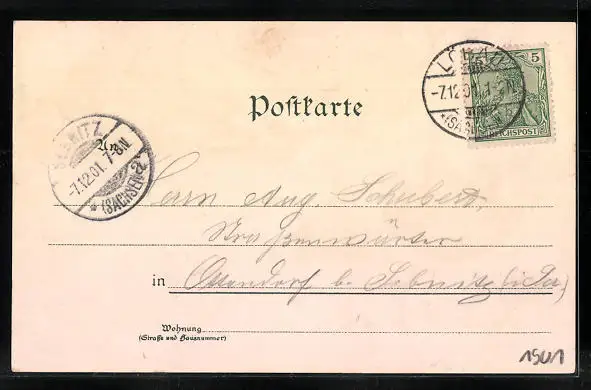 LÖBAU
-7.12.01.
*(SACHSEN)
5
REICHSPOST
Postkarte
SEBNITZ
-7.12.01. 7-8N
* (SACHSEN) a
An
Herrn Aug. Schubert,
Straßenwärter
in Ottendorf b. Sebnitz i/Sa.
Wohnung
(Straße und Hausnummer)
1901